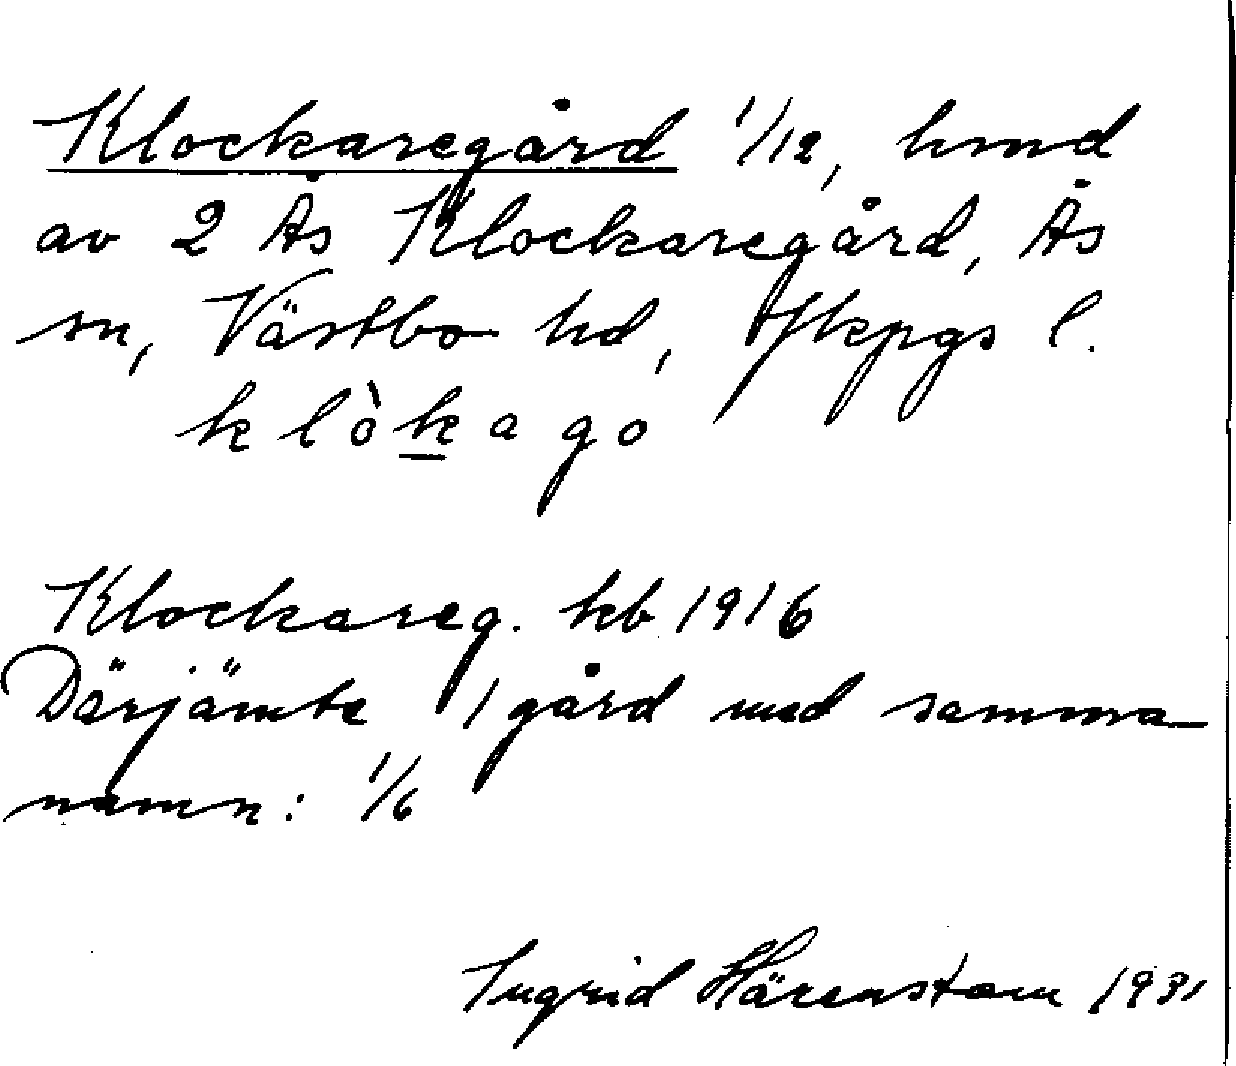 Klockaregård 1/12, hmd
av 2 Ås Klockaregård, Ås
sn, Västbo hd, Jkpgs l.
klòkago
Klockareg. kb 1916
Därjämte 1 gård med samma
namn: 1/6
Ingrid Härenstam 1931